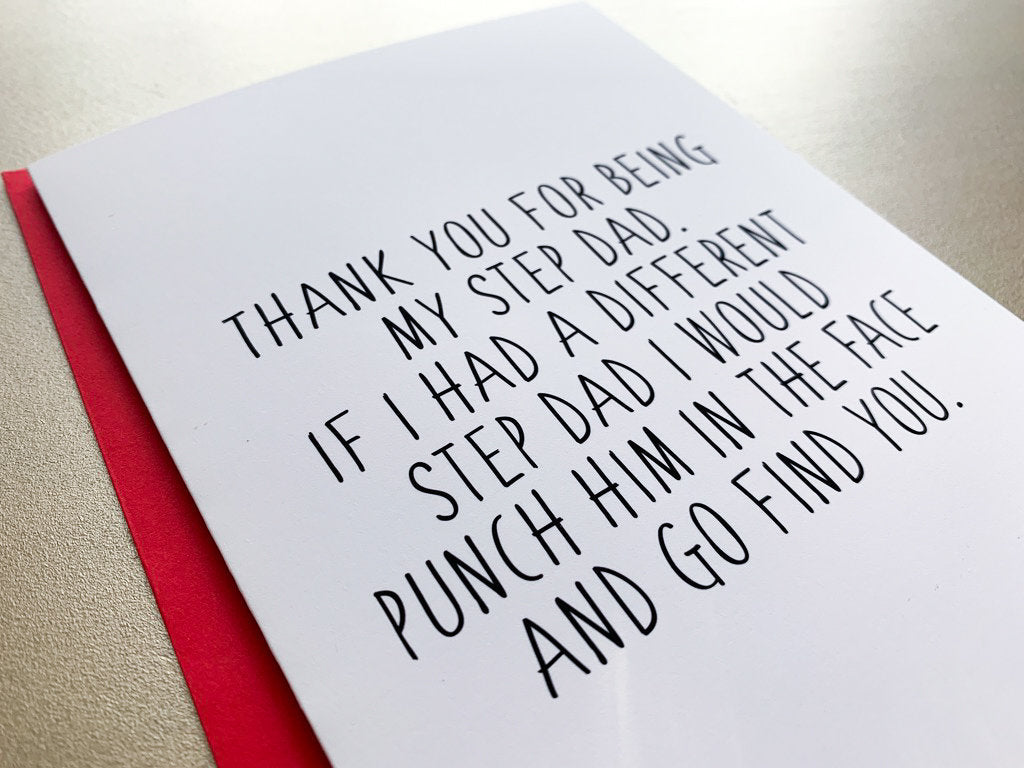 THANK YOU FOR BEING
MY STEP DAD.
IF I HAD A DIFFERENT
STEP DAD I WOULD
PUNCH HIM IN THE FACE
AND GO FIND YOU.